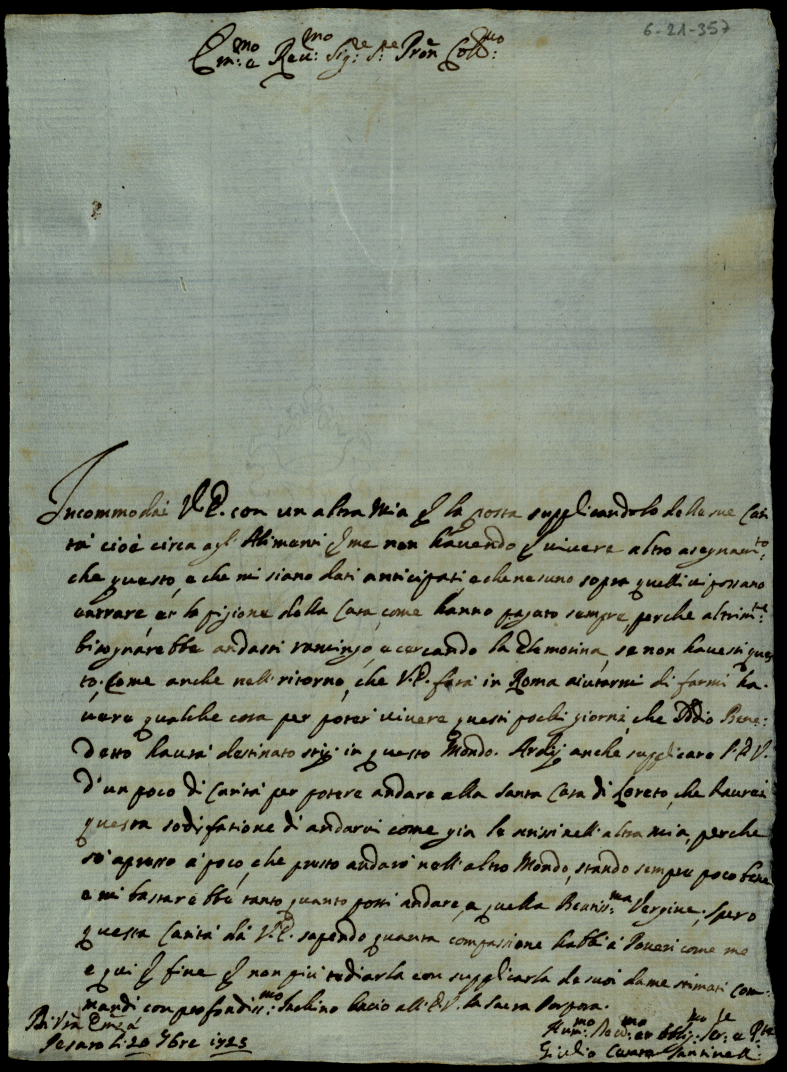 6-21-357
Em:mo e Rev:mo Sig:re S:re Pron:e Coll:mo
Incommodai V.E. con un altra mia P la posta supplicandolo della sua Cari
tà cioè circa agl'Alimenti P me non havendo P vivere altro asegnam:to
che questo, e che mi siano dati anticipati, e che nesuno sopra quelli vi possano
entrare, et la pigione della Casa, come hanno pagato sempre, perche altrim:te
bisognarebbe andassi ramingo, e cercando la Elemosina, se non havessi ques
to, Come anche nell'ritorno, che V.E. farà in Roma aiutarmi di farmi ha:
vere qualche cosa per poter vivere questi pochi giorni, che Iddio Bene:
detto haurà destinato stij in questo Mondo. Ardij anche supplicare l'E.V.
d'un poco di Carità per potere andare alla Santa Casa di Loreto, che haurei
questa sodisfatione di andarvi come gia le scrissi nell'altra mia, perche
sò apresso a poco, che presto andarò nell'altro Mondo, stando sempre poco bene
e mi bastarebbe tanto quanto possi andare, a quella Beatiss:ma Vergine, Spero
questa Carità dà V.E. sapendo quanta compassione habbi à Poveri come me
e qui P fine P non più tediarla con supplicarla de suoi da me stimati Com:
mandi con profondiss:mo Inchino bacio all'E.V. la Sacra Porpora.
Di V:ra Em:za
Pesaro li 20 9bre 1725
Hum:mo Dev:mo et Obblig:mo Ser:re e
Giulio Cesare Santinelli